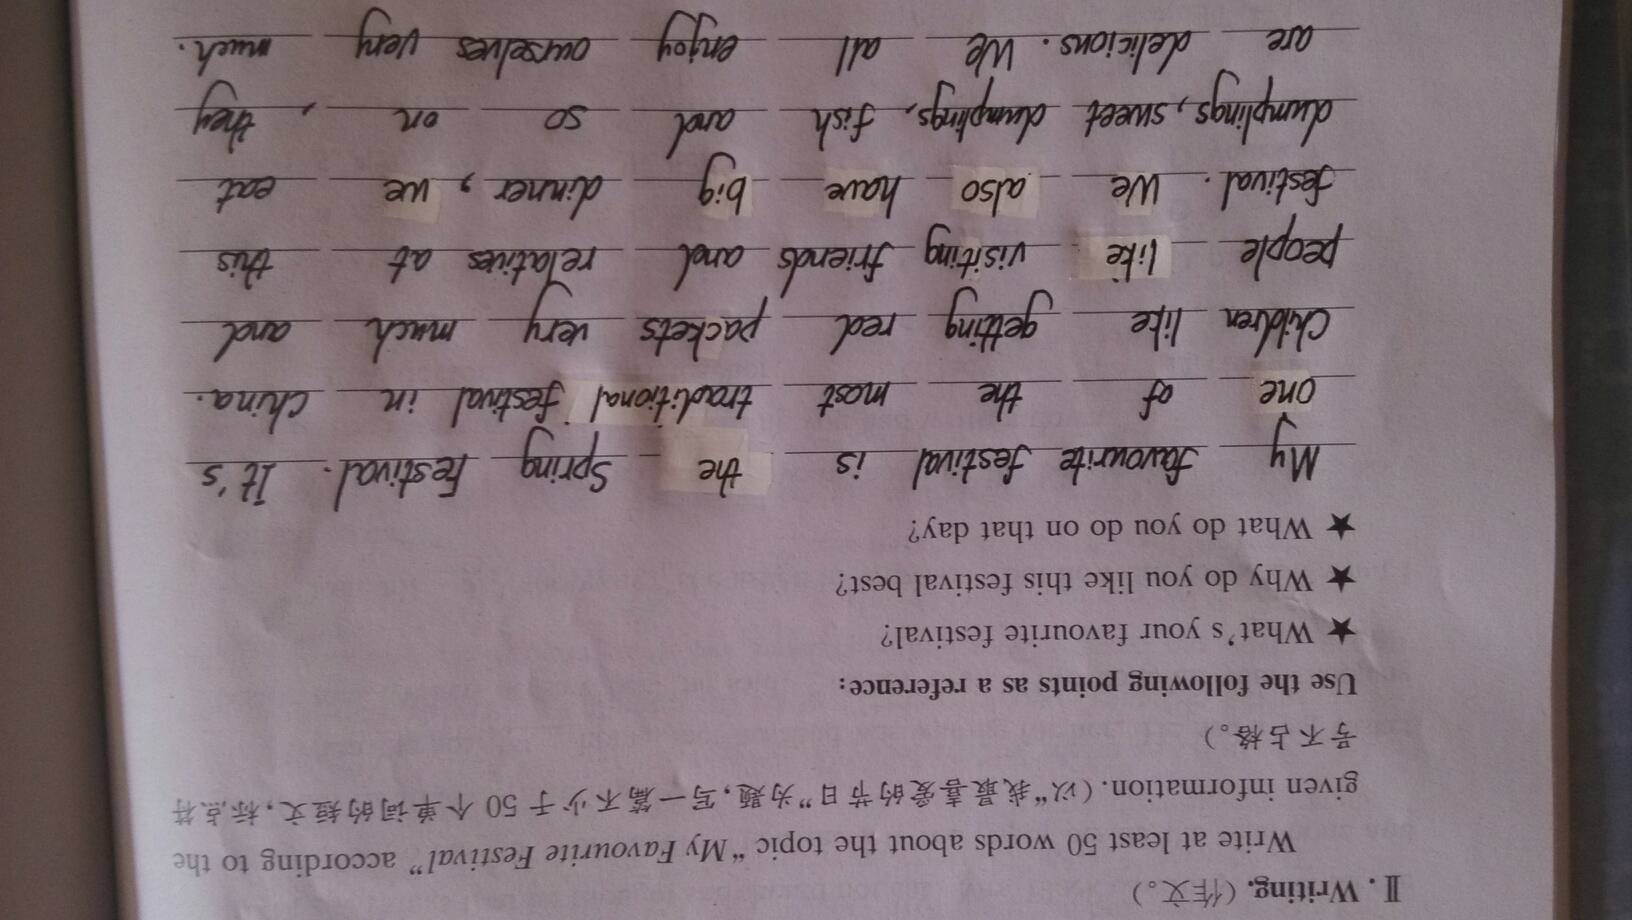 II. Writing. (作文。)
Write at least 50 words about the topic “My Favourite Festival” according to the
given information. (以“我最喜爱的节日”为题,写一篇不少于 50 个单词的短文,标点符
号不占格。)
Use the following points as a reference:
★ What's your favourite festival?
★ Why do you like this festival best?
★ What do you do on that day?
My favourite festival is the Spring Festival. It's
one of the most traditional festival in China.
Children like getting red packets very much and
people like visiting friends and relatives at this
festival. We also have big dinner, we eat
dumplings, sweet dumplings, fish and so on, they
are delicions. We all enjoy ourselves very much.